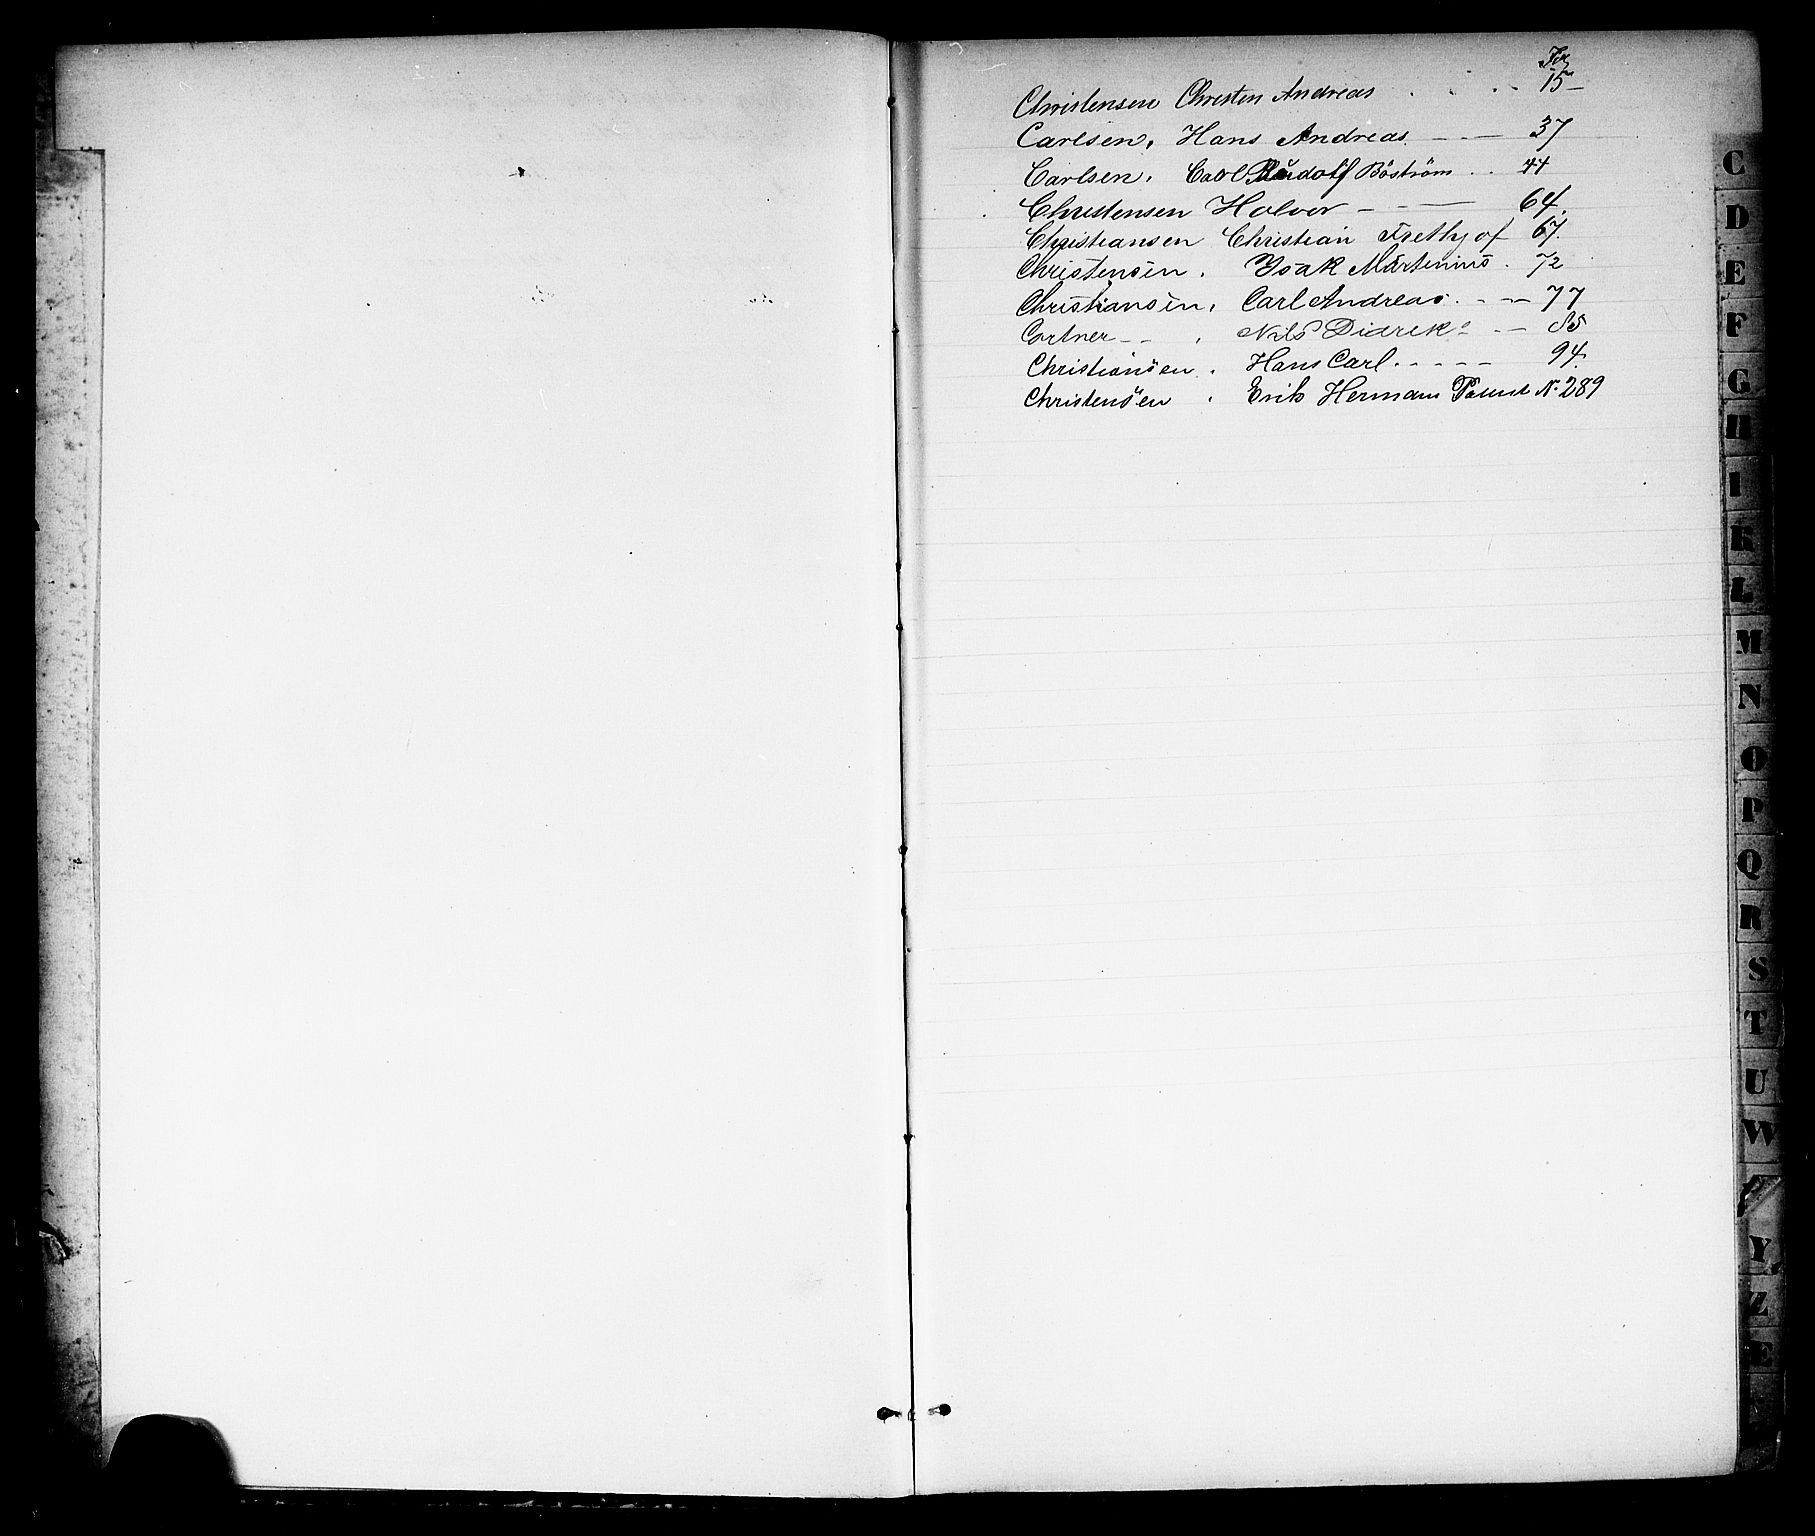 Fol
Christensen Christen Andreas . . . . 15
Carlsen, Hans Andreas. - - - 37
Carlsen, Carl Rudolf Böström . . 44
Christensen Halvor - - - - 64.
Christiansen Christian Frethjof 67.
Christensen. Ysak Martinius. 72
Christiansen, Carl Andreas. - - - 77
Cortner - - , Nils Didrik - - 85
Christiansen. Hans Carl. - - - - - 94.
Christensen . Erik Herman Patent N. 289
C
D
E
F
G
H
I
K
L
M
N
O
P
Q
R
S
T
U
W
Y
Z